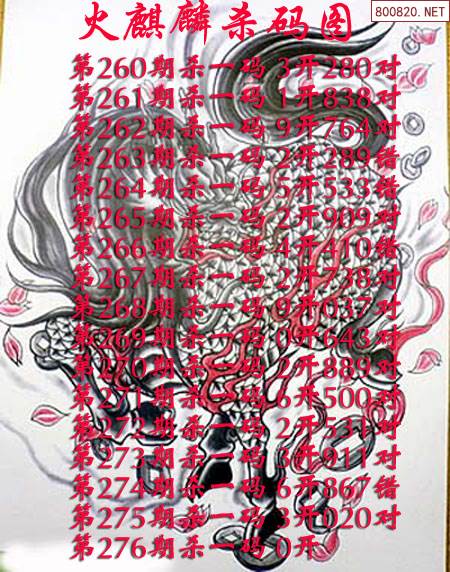 火麒麟杀码图
800820.NET
第260期杀一码 3开280对
第261期杀一码 1开838对
第262期杀一码 9开764对
第263期杀一码 2开289错
第264期杀一码 5开533错
第265期杀一码 2开909对
第266期杀一码 4开410错
第267期杀一码 2开738对
第268期杀一码 9开037对
第269期杀一码 0开643对
第270期杀一码 2开889对
第271期杀一码 6开500对
第272期杀一码 2开531对
第273期杀一码 3开911对
第274期杀一码 6开867错
第275期杀一码 3开020对
第276期杀一码 0开